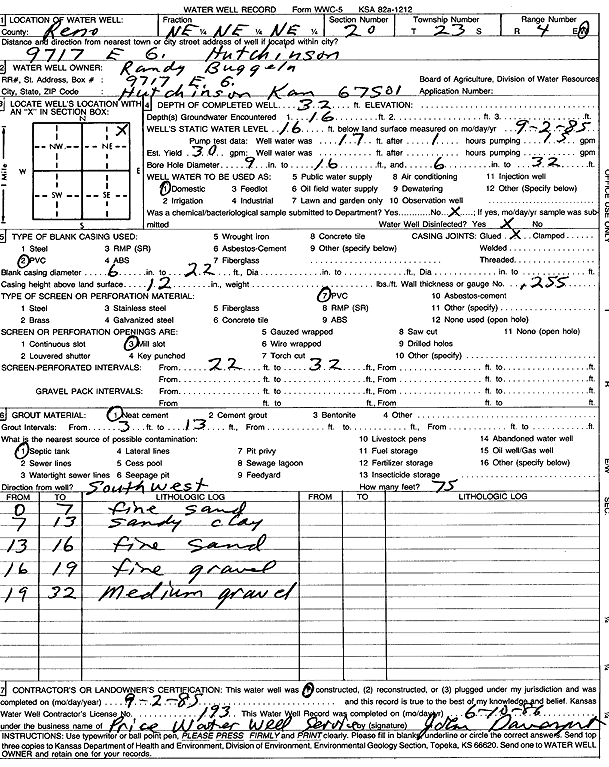 WATER WELL RECORD Form WWC-5 KSA 82a-1212
1 LOCATION OF WATER WELL: Fraction Section Number Township Number Range Number
County: Reno NE ¼ NE ¼ NE ¼ 20 T 23 S R 4 E/W
Distance and direction from nearest town or city street address of well if located within city?
9717 E 6. Hutchinson
2 WATER WELL OWNER: Randy Buggeln
RR#, St. Address, Box # : 9717 E 6. Board of Agriculture, Division of Water Resources
City, State, ZIP Code : Hutchinson Kan 67501 Application Number:
3 LOCATE WELL'S LOCATION WITH AN "X" IN SECTION BOX:
N
X
NW NE
W E
SW SE
S
1 Mile
4 DEPTH OF COMPLETED WELL 32 ft. ELEVATION:
Depth(s) Groundwater Encountered 1. 16
WELL'S STATIC WATER LEVEL 16 ft. below land surface measured on mo/day/yr 9-2-85
Pump test data: Well water was 17 ft. after 1 hours pumping 15 gpm
Est. Yield 30 gpm: Well water was ft. after hours pumping gpm
Bore Hole Diameter 9 in. to 16 ft., and 6 in. to 32 ft.
WELL WATER TO BE USED AS: 5 Public water supply 8 Air conditioning 11 Injection well
1 Domestic 3 Feedlot 6 Oil field water supply 9 Dewatering 12 Other (Specify below)
2 Irrigation 4 Industrial 7 Lawn and garden only 10 Observation well
Was a chemical/bacteriological sample submitted to Department? Yes No X ; If yes, mo/day/yr sample was sub-
mitted Water Well Disinfected? Yes X No
5 TYPE OF BLANK CASING USED: 5 Wrought iron 8 Concrete tile CASING JOINTS: Glued X Clamped
1 Steel 3 RMP (SR) 6 Asbestos-Cement 9 Other (specify below) Welded
2 PVC 4 ABS 7 Fiberglass Threaded
Blank casing diameter 6 in. to 22 ft., Dia in. to ft., Dia in. to ft.
Casing height above land surface 12 in., weight lbs./ft. Wall thickness or gauge No. .255
TYPE OF SCREEN OR PERFORATION MATERIAL: 7 PVC 10 Asbestos-cement
1 Steel 3 Stainless steel 5 Fiberglass 8 RMP (SR) 11 Other (specify)
2 Brass 4 Galvanized steel 6 Concrete tile 9 ABS 12 None used (open hole)
SCREEN OR PERFORATION OPENINGS ARE: 5 Gauzed wrapped 8 Saw cut 11 None (open hole)
1 Continuous slot 3 Mill slot 6 Wire wrapped 9 Drilled holes
2 Louvered shutter 4 Key punched 7 Torch cut 10 Other (specify)
SCREEN-PERFORATED INTERVALS: From 22 ft. to 32 ft., From ft. to ft.
From ft. to ft., From ft. to ft.
GRAVEL PACK INTERVALS: From ft. to ft., From ft. to ft.
From ft. to ft., From ft. to ft.
6 GROUT MATERIAL: 1 Neat cement 2 Cement grout 3 Bentonite 4 Other
Grout Intervals: From 3 ft. to 13 ft., From ft. to ft., From ft. to ft.
What is the nearest source of possible contamination: 10 Livestock pens 14 Abandoned water well
1 Septic tank 4 Lateral lines 7 Pit privy 11 Fuel storage 15 Oil well/Gas well
2 Sewer lines 5 Cess pool 8 Sewage lagoon 12 Fertilizer storage 16 Other (specify below)
3 Watertight sewer lines 6 Seepage pit 9 Feedyard 13 Insecticide storage
Direction from well? Southwest How many feet? 75
FROM TO LITHOLOGIC LOG FROM TO LITHOLOGIC LOG
0 7 fine sand
7 13 sandy clay
13 16 fine sand
16 19 fine gravel
19 32 medium gravel
7 CONTRACTOR'S OR LANDOWNER'S CERTIFICATION: This water well was (1) constructed, (2) reconstructed, or (3) plugged under my jurisdiction and was
completed on (mo/day/year) 9-2-85 and this record is true to the best of my knowledge and belief. Kansas
Water Well Contractor's License No. 193 This Water Well Record was completed on (mo/day/yr)
under the business name of Price Water Well Service by (signature) John Davenport
INSTRUCTIONS: Use typewriter or ball point pen, PLEASE PRESS FIRMLY and PRINT clearly. Please fill in blanks, underline or circle the correct answers. Send top
three copies to Kansas Department of Health and Environment, Division of Environment, Environmental Geology Section, Topeka, KS 66620. Send one to WATER WELL
OWNER and retain one for your records.
OFFICE USE ONLY
T
R
E/W
SEC.